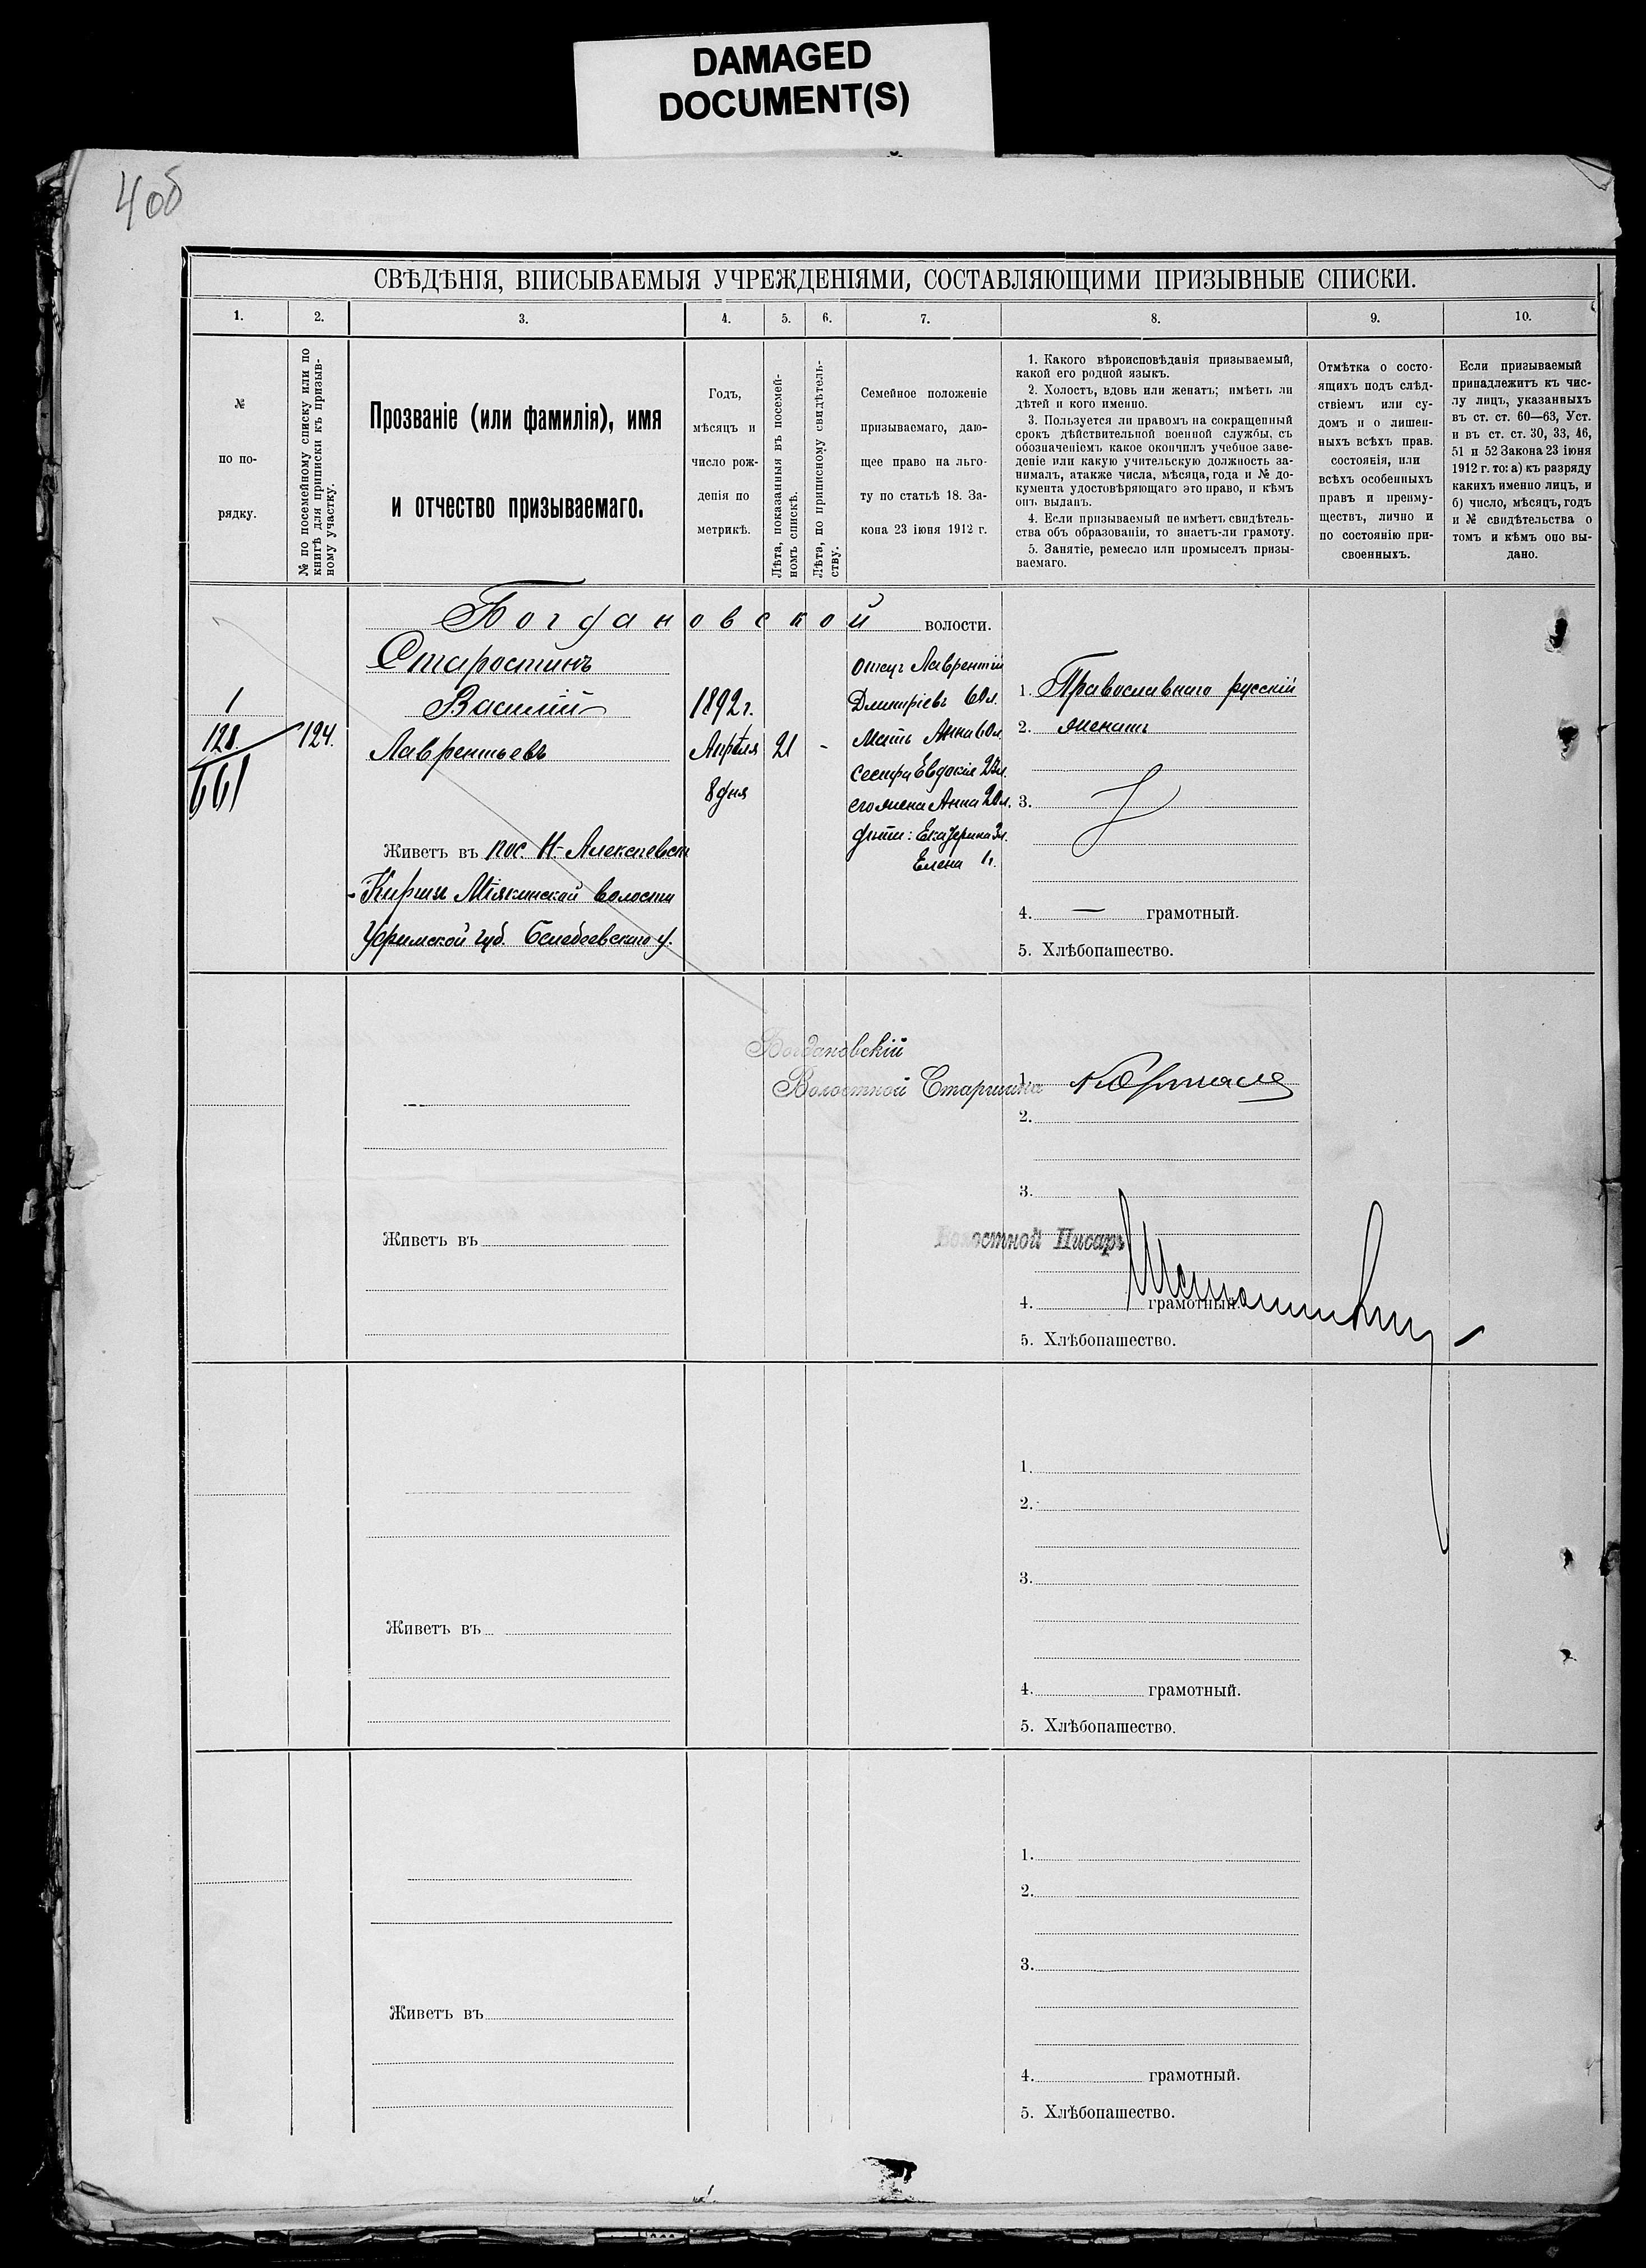 DAMAGED
DOCUMENT(S)
40б
СВѢДѢНІЯ, ВПИСЫВАЕМЫЯ УЧРЕЖДЕНІЯМИ, СОСТАВЛЯЮЩИМИ ПРИЗЫВНЫЕ СПИСКИ.
1.
2.
3.
4.
5.
6.
7.
8.
9.
10.
№
по по-
рядку.
№ по посемейному списку или по
книгѣ для приписки къ призыв-
ному участку.
Прозваніе (или фамилія), имя
и отчество призываемаго.
Годъ,
мѣсяцъ и
число рож-
денія по
метрикѣ.
Лѣта, показанныя въ посемей-
номъ спискѣ.
Лѣта, по приписному свидѣтель-
ству.
Семейное положеніе
призываемаго, даю-
щее право на льго-
ту по статьѣ 18. За-
кона 23 іюня 1912 г.
1. Какого вѣроисповѣданія призываемый,
какой его родной языкъ.
2. Холостъ, вдовъ или женатъ; имѣетъ ли
дѣтей и кого именно.
3. Пользуется ли правомъ на сокращенный
срокъ дѣйствительной военной службы, съ
обозначеніемъ какое окончилъ учебное заве-
деніе или какую учительскую должность за-
нималъ, атакже числа, мѣсяца, года и № до-
кумента удостовѣряющаго это право, и кѣмъ
онъ выданъ.
4. Если призываемый не имѣетъ свидѣтель-
ства объ образованіи, то знаетъ-ли грамоту.
5. Занятіе, ремесло или промыселъ призы-
ваемаго.
Отмѣтка о состо-
ящихъ подъ слѣд-
ствіемъ или су-
домъ и о лишен-
ныхъ всѣхъ прав.
состоянія, или
всѣхъ особенныхъ
правъ и преиму-
ществъ, лично и
по состоянію при-
своенныхъ.
Если призываемый
принадлежитъ къ чис-
лу лицъ, указанныхъ
въ ст. ст. 60—63, Уст.
и въ ст. ст. 30, 33, 46,
51 и 52 Закона 23 іюня
1912 г. то: а) къ разряду
какихъ именно лицъ, и
б) число, мѣсяцъ, годъ
и № свидѣтельства о
томъ и кѣмъ оно вы-
дано.
Богдановской волости.
1
128.
661
124.
Старостинъ
Василій
Лаврентьевъ
Живетъ въ пос. Н-Алексѣевск
Кирши Міякинской волости
Уфимской губ. Белебеевскаго у.
1892 г.
Апрѣля
8 дня
21
-
отецъ Лаврентій
Дмитріевъ 60 л.
Мать Анна 60 л.
сестра Евдокія
его жена Анна 20 л.
дѣти: Екатерина 3 л.
Елена 1 г.
1. Православнаго русскій
2. женатъ
3.
4. — грамотный.
5. Хлѣбопашество.
Богдановскій
Волостной Старшина
1.
2.
3.
Волостной Писарь
Живетъ въ
4. грамотный.
5. Хлѣбопашество.
1.
2.
3.
Живетъ въ
4. грамотный.
5. Хлѣбопашество.
1.
2.
3.
Живетъ въ
4. грамотный.
5. Хлѣбопашество.